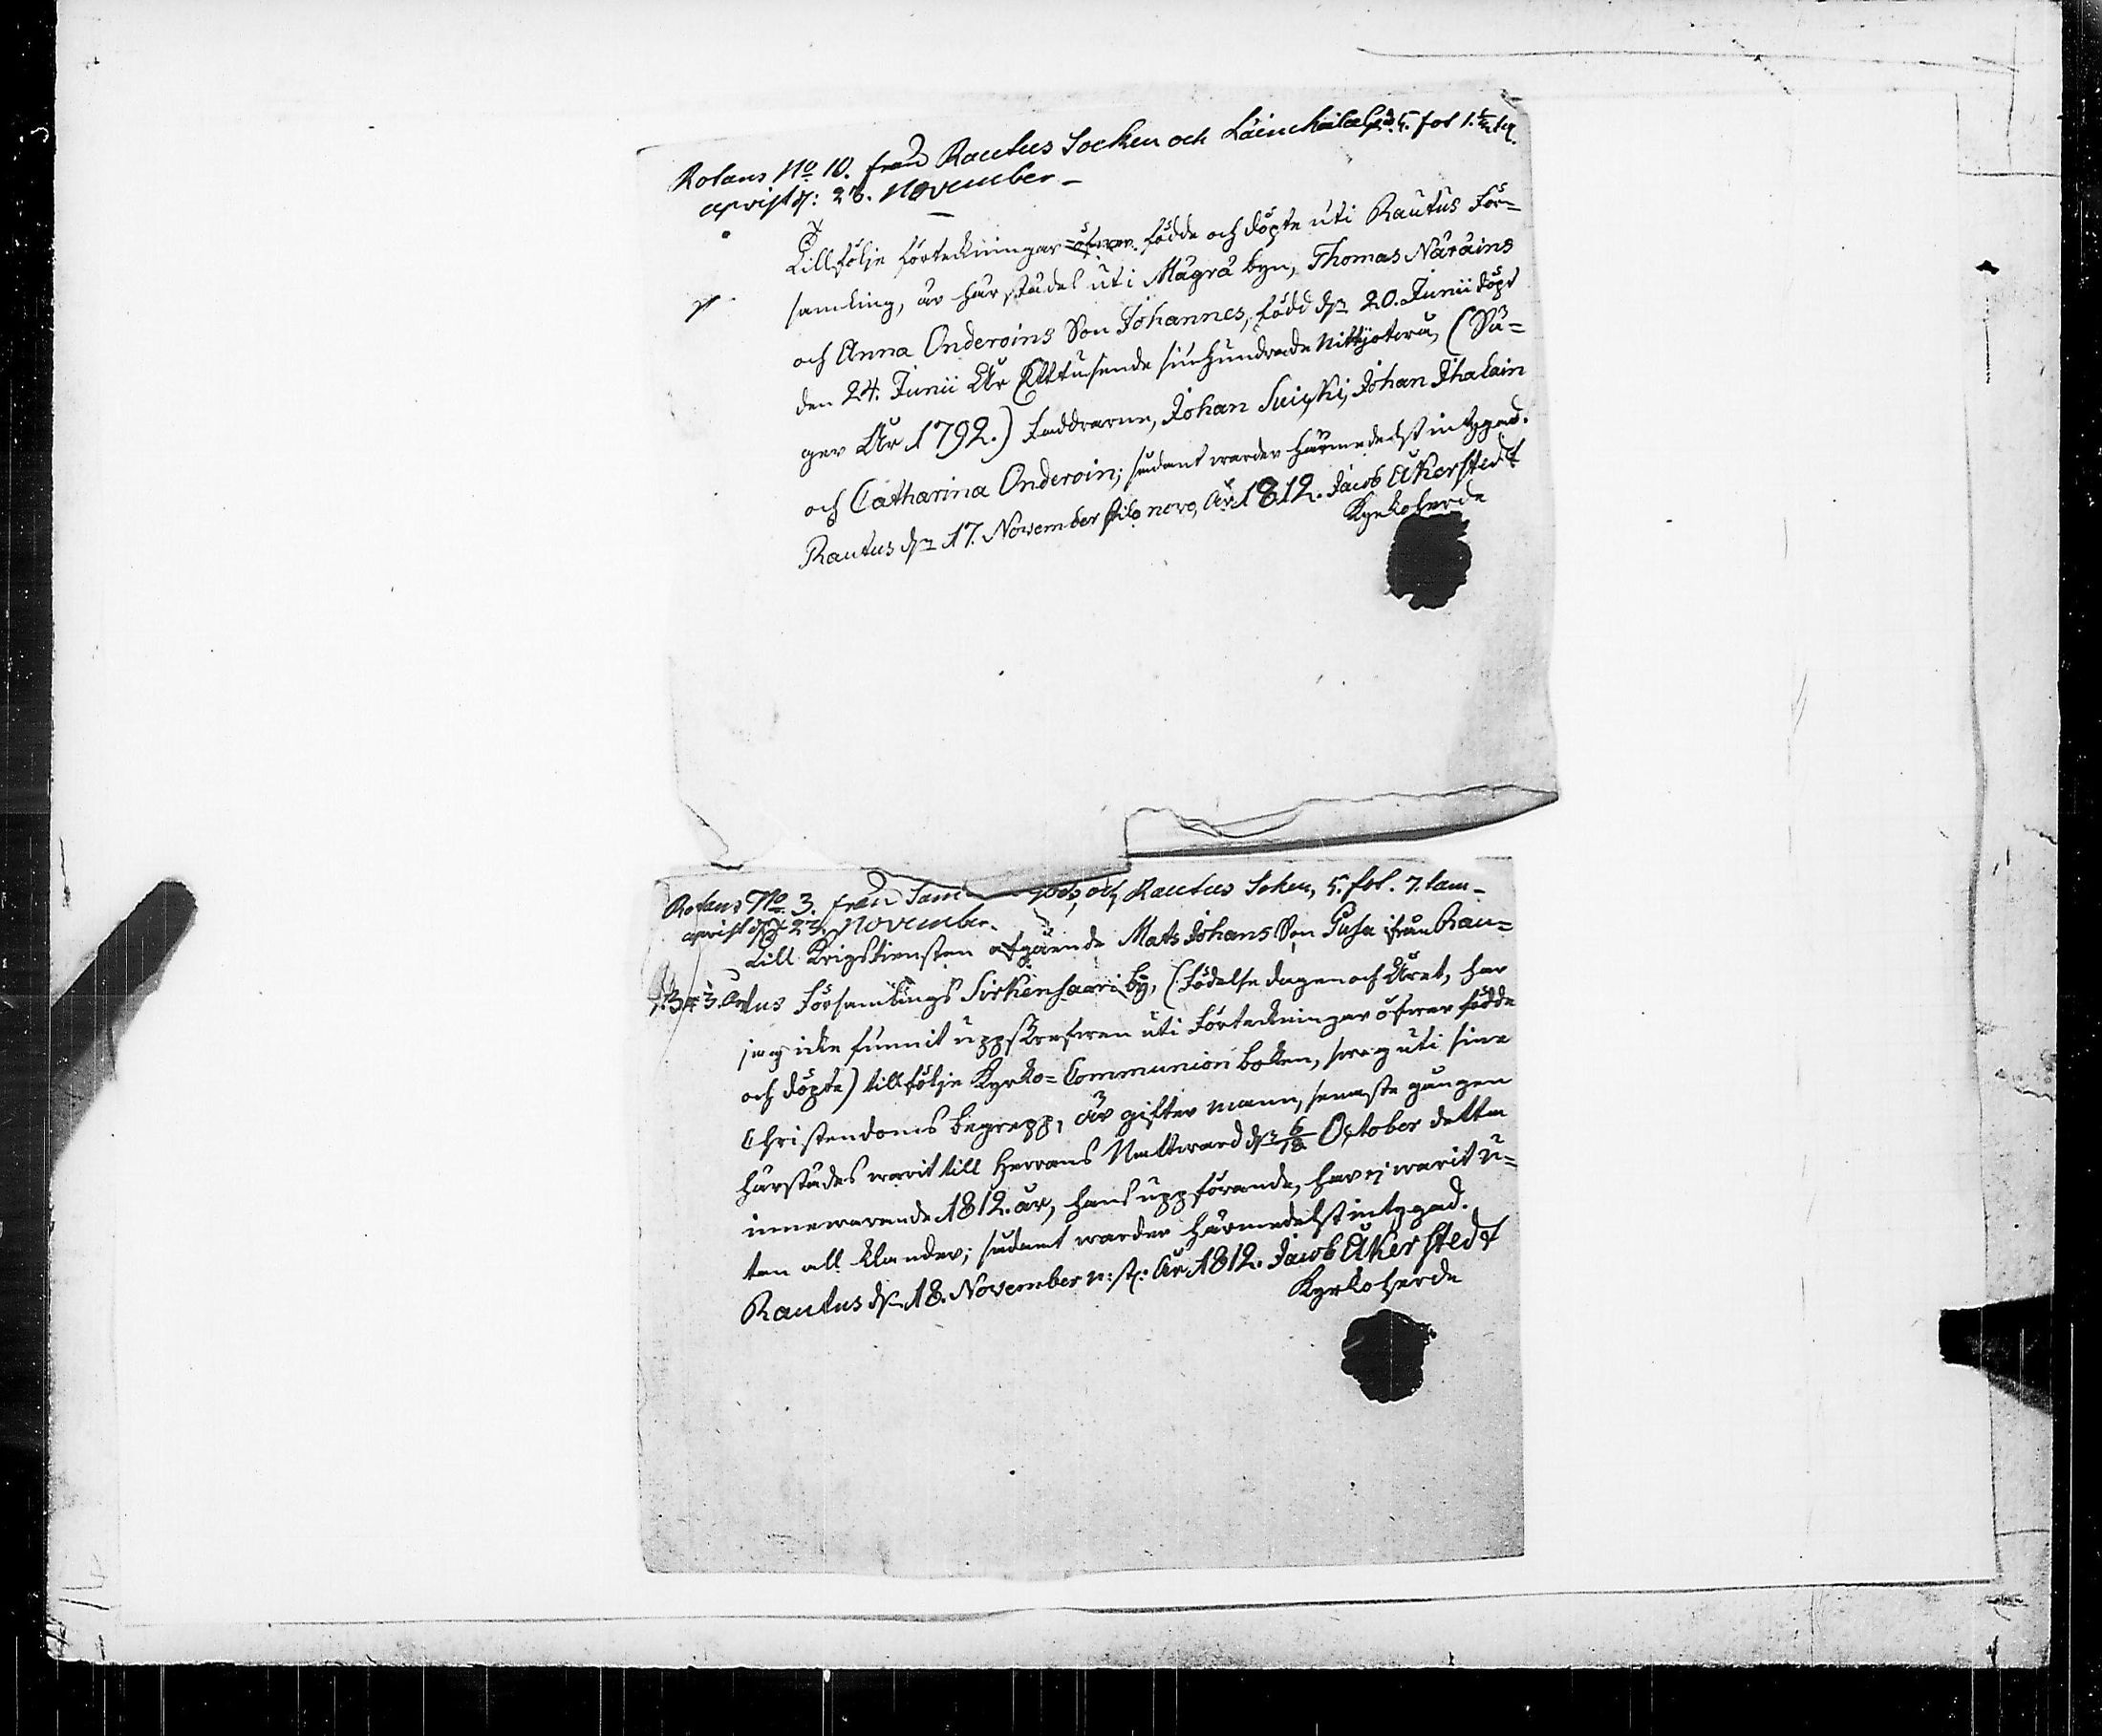 Rotans No 10. från Rautus Socken och 5. fol 1.
aprist d: 23. November
Till följe förteckningar öfwer födde och döpte uti Rautus För=
samling, är härstädes uti Mägrä byn, Thomas Näräins
och Anna Onderoins Son Johannes, född dn 20. Junii döpt
den 24. Junii År Ett tusende siuhundrade Nittijotwå, (Sä=
ger År 1792.) Faddrarne, Johan Suiski, Johan Ihalain
och Catharina Onderoin; sådant warder härmedelst intygad.
Rautus dn 17. November stilo novo, År 1812. Jacob Åkerstedt
Kyrkoherde
Rotans No 3. från och Rautus Soken, 5. fol. 7. tam
aprist 23. November
Till Krigstiensten afgående Mats Johans Son Pusa ifrån Rau=
tus Församlings Sirkensaari by, (Födelse dagen och Året, har
jag icke funnit uppskrefwen uti Förteckningar öfwer födde
och döpte) till följe Kyrko=Communion boken, swag uti sine
Christendoms begrepp, är gifter mann, senaste gången
härstädes warit till Herrans Nattward dn 6/18 October detta
innewarande 1812. år, hans uppförande, har ej warit u=
tan all klander; sådant warder härmedelst intygad.
Rautus dn 18. November n: st: År 1812. Jacob Åkerstedt
Kyrkoherde